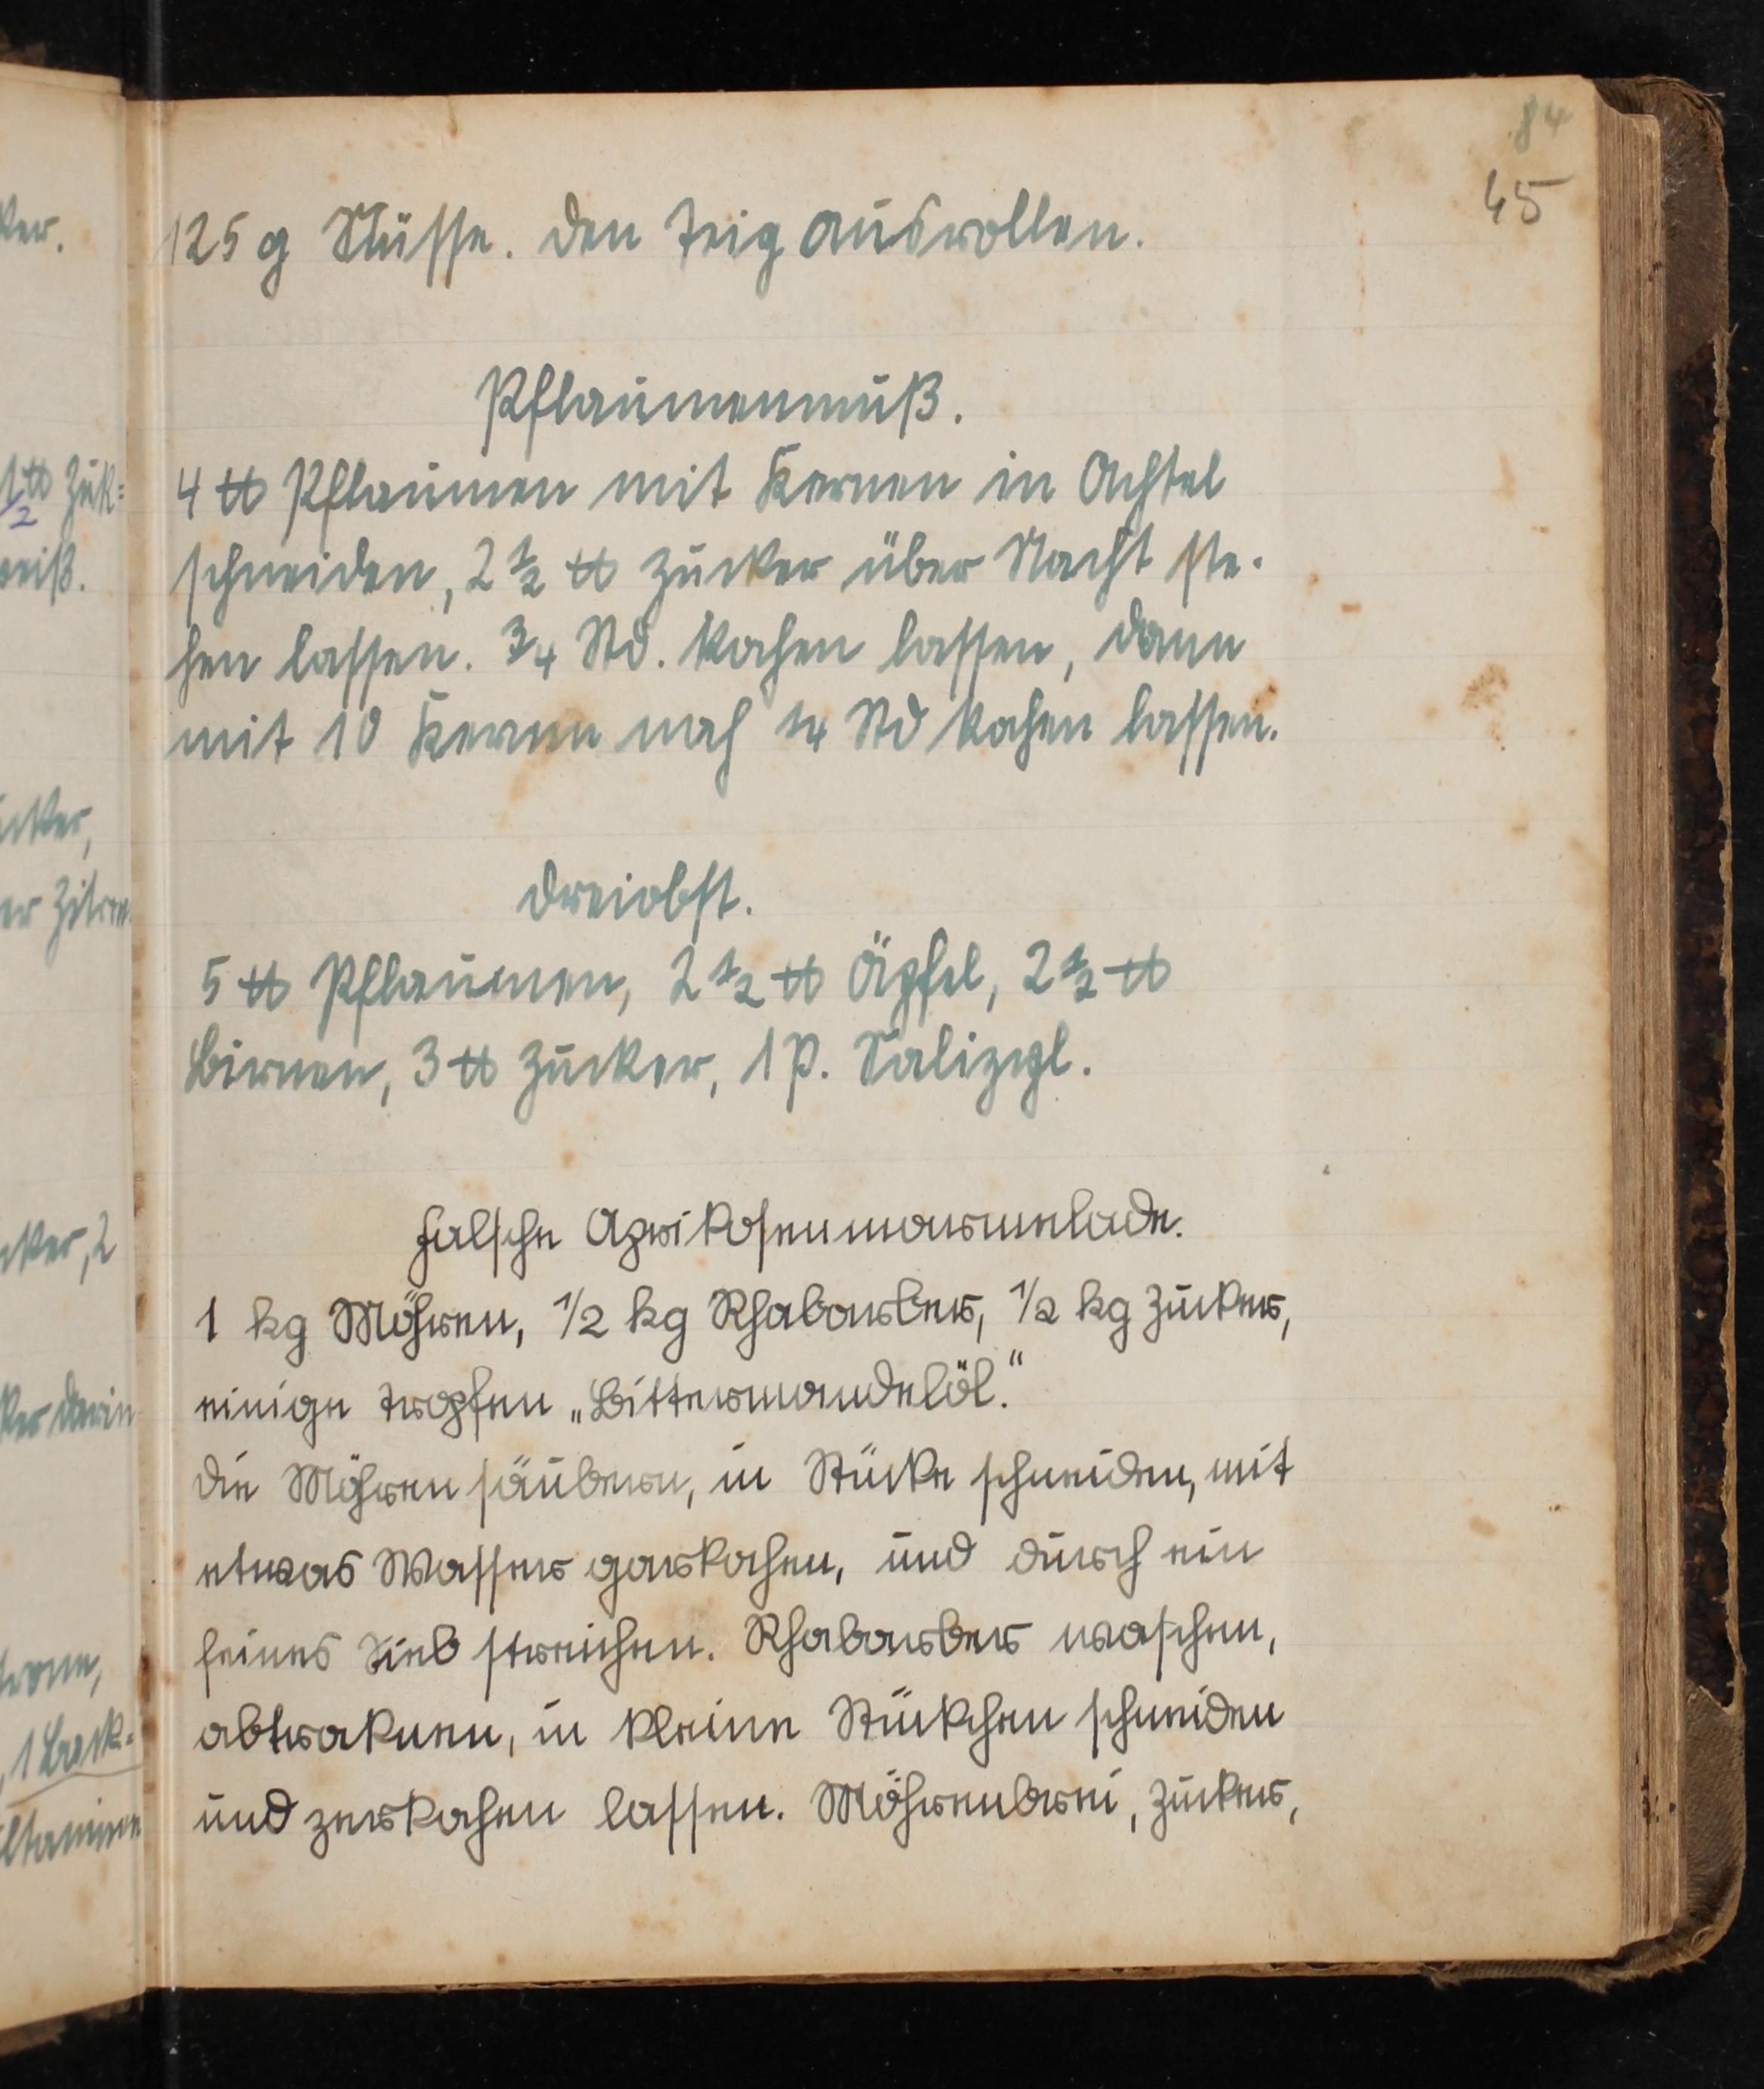 84
45
125 g Nüsse. Den Teig ausrollen.
Pflaumenmuß.
4 ℔ Pflaumen mit Kernen in Achtel
schneiden, 2 1/2 ℔ Zucker über Nacht ste-
hen lassen. 3/4 Std. kochen lassen, dann
mit 10 Kernen noch 1/4 Std kochen lassen.
Dreiobst.
5 ℔ Pflaumen, 2 1/2 ℔ Äpfel, 2 1/2 ℔
Birnen, 3 ℔ Zucker, 1 P. Salizyl.
Falsche Aprikosenmarmelade.
1 kg Möhren, 1/2 kg Rhabarber, 1/2 kg Zucker,
einige Tropfen „Bittermandelöl.“
Die Möhren säubern, in Stücke schneiden, mit
etwas Wasser garkochen, und durch ein
feines Sieb streichen. Rhabarber waschen,
abtroknen, in kleine Stückchen schneiden
und zerkochen lassen. Möhrenbrei, Zucker,